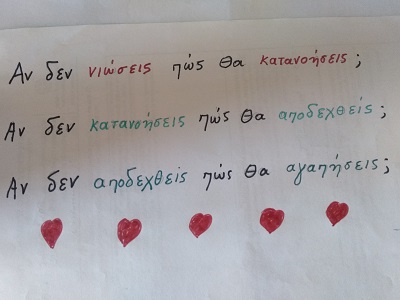 Αν δεν νιώσεις πώς θα κατανοήσεις;
Αν δεν κατανοήσεις πώς θα αποδεχθείς;
Αν δεν αποδεχθείς πώς θα αγαπήσεις;